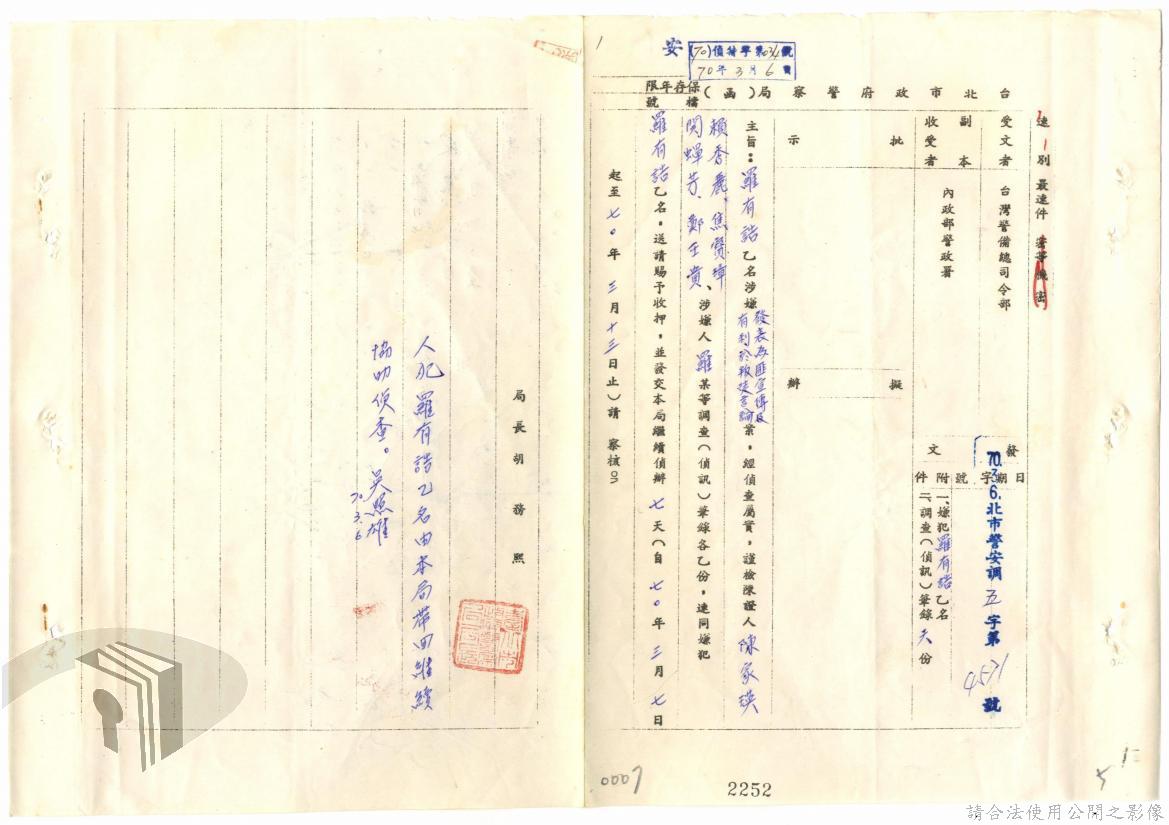 安
(70)偵特字第034號
70年3月6日
保存年限
檔號
台北市政府警察局(函)
速別 最速件 密等 機密
受文者 台灣警備總司令部
副本收受者 內政部警政署
批示
擬辦
發文
日期 70.3.6.
字號 北市警安調五字第4571號
附件
一、嫌犯羅有諮乙名
二、調查(偵訊)筆錄六份
主旨：羅有諮乙名涉嫌發表為匪宣傳及有利於叛徒言論案，經偵查屬實，謹檢陳證人陳家瑛
賴香農、焦賢璋
閔蟬芳、鄭玉貴、涉嫌人羅某等調查(偵訊)筆錄各乙份，連同嫌犯
羅有諮乙名，送請賜予收押，並發交本局繼續偵辦七天(自七〇年三月七日
起至七〇年三月十三日止)請 察核。
局長胡務熙
人犯羅有諮乙名由本局帶回繼續
協助偵查。吳照雄
70.3.6
0007
2252
5
請合法使用公開之影像